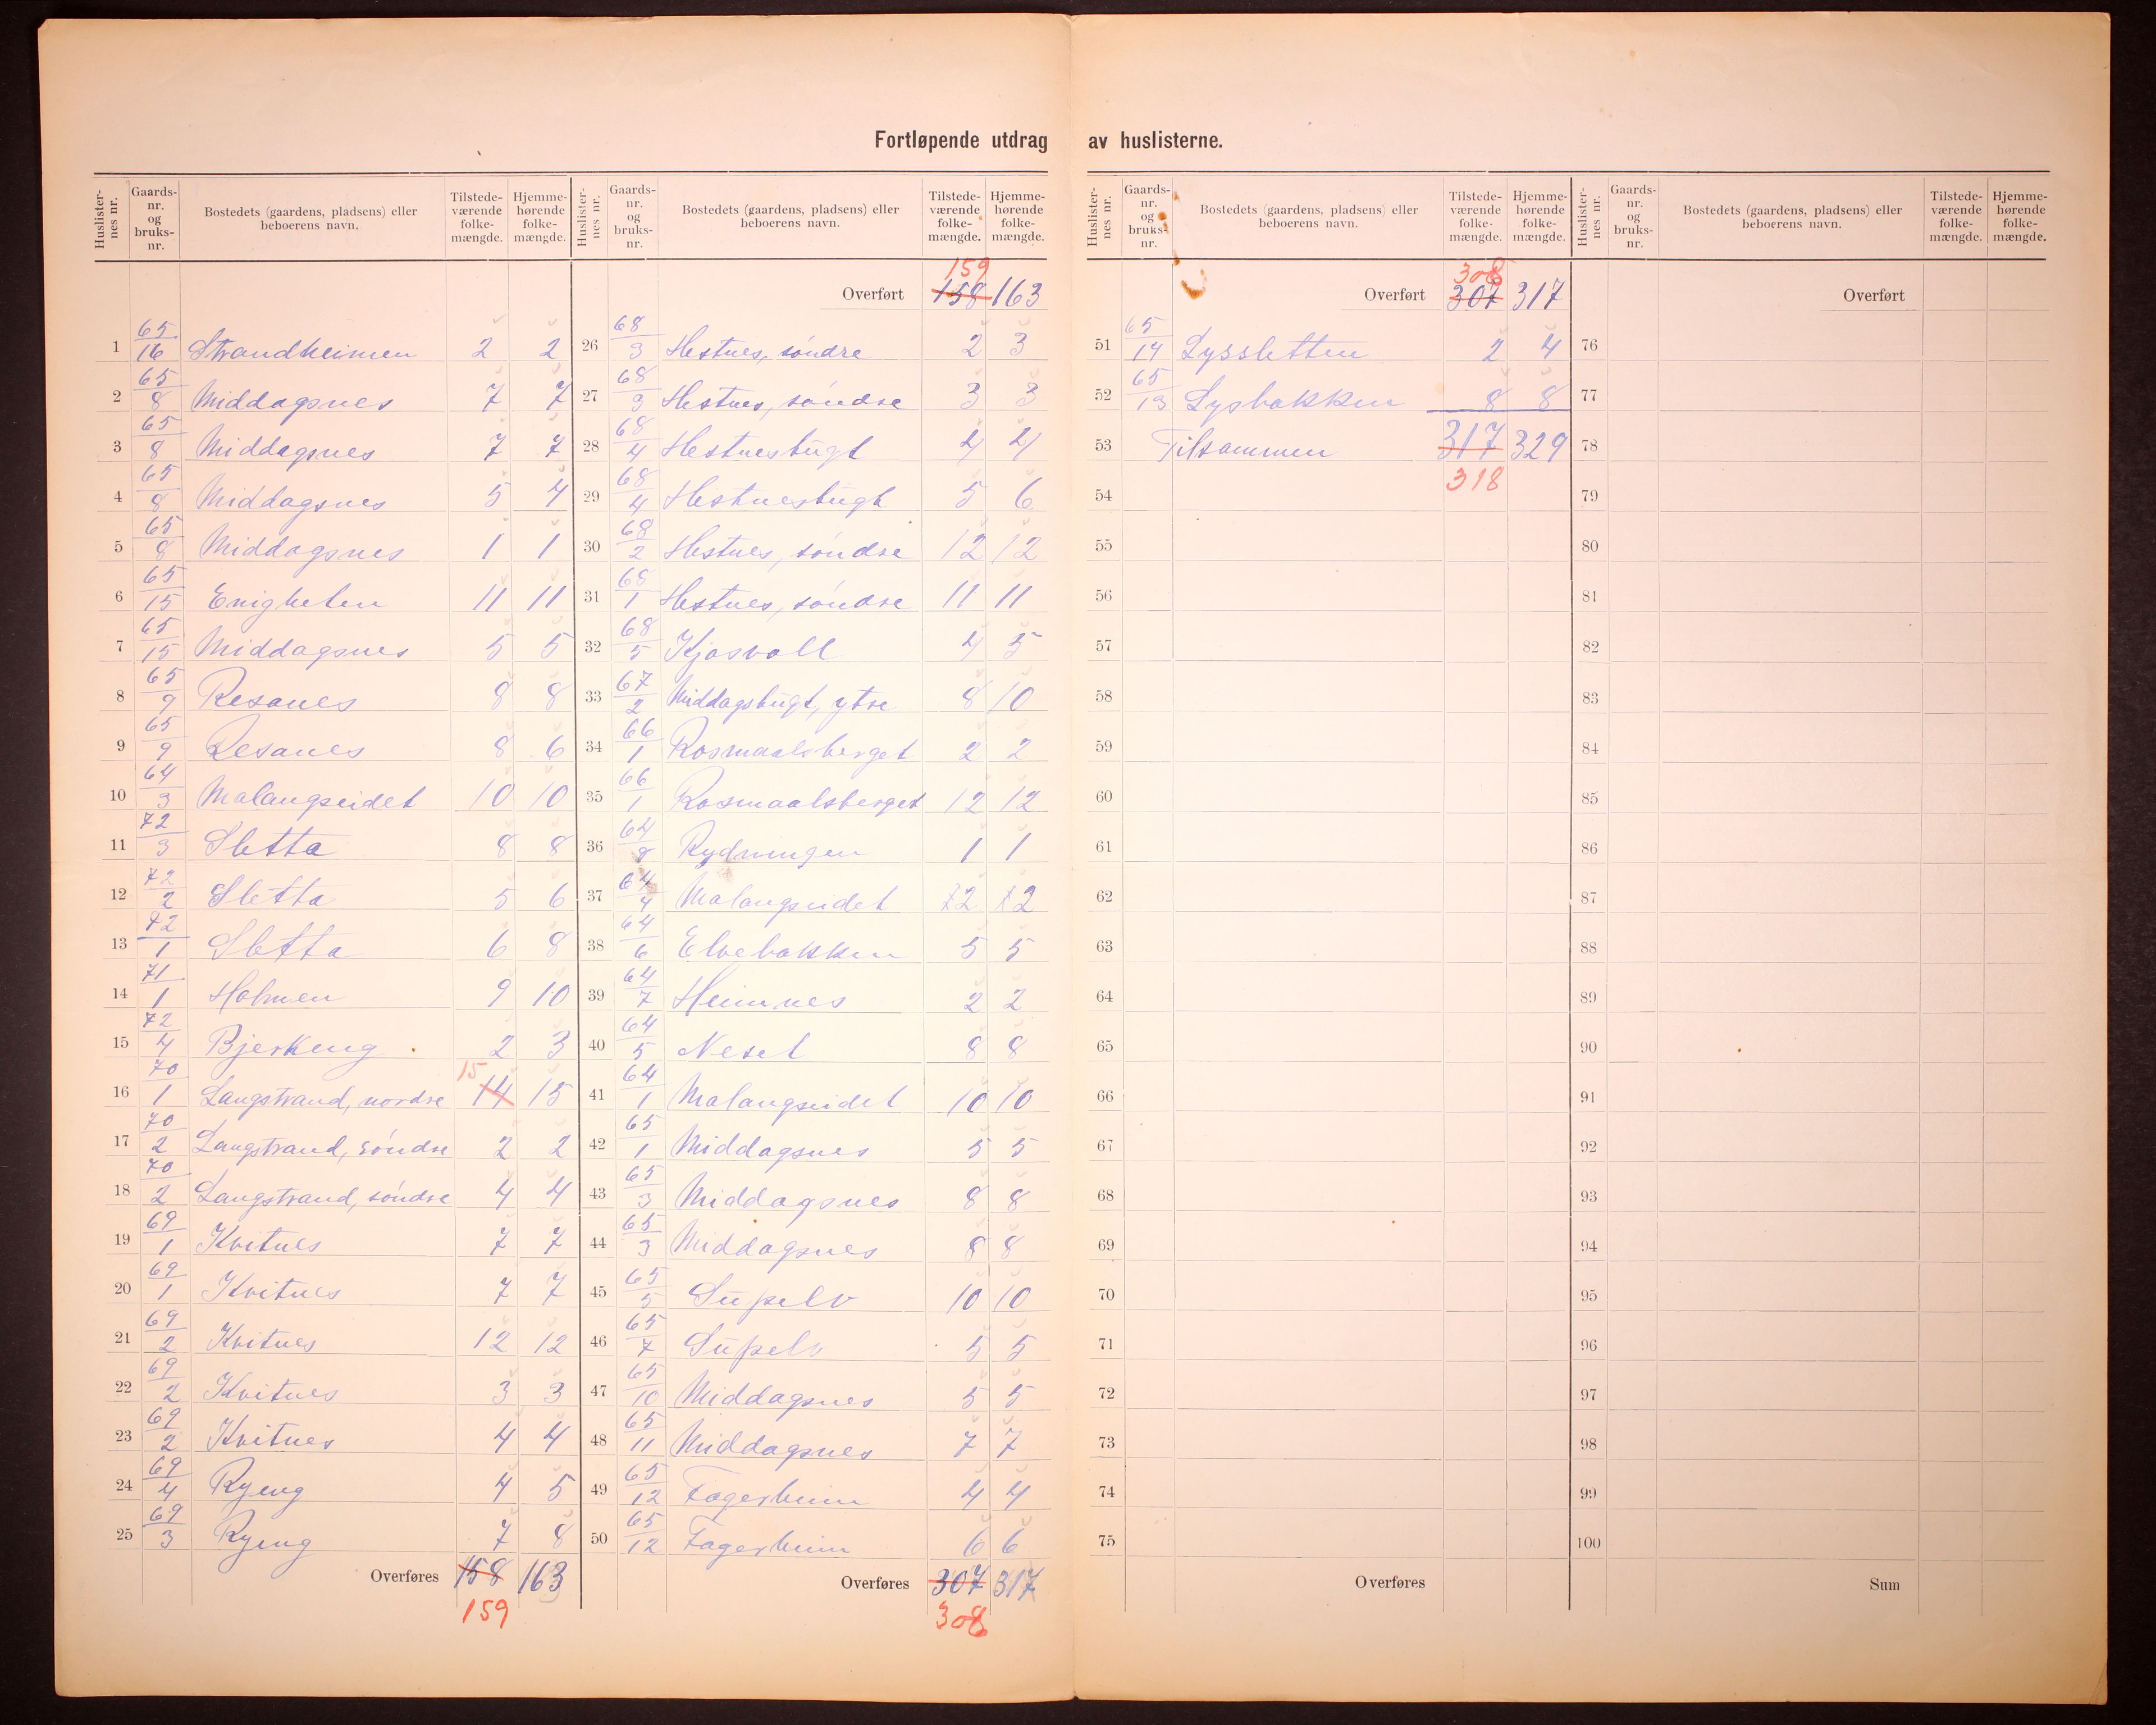 Fortløpende utdrag av huslisterne.
Huslisternes nr. Gaards-nr. og bruks-nr. Bostedets (gaardens, pladsens) eller beboerens navn. Tilstede-værende folke-mængde. Hjemme-hørende folke-mængde.
1 65/16 Strandheimen 2 2
2 65/8 Middagsnes 7 7
3 65/8 Middagsnes 7 7
4 65/8 Middagsnes 5 4
5 65/8 Middagsnes 1 1
6 65/15 Enigheten 11 11
7 65/15 Middagsnes 5 5
8 65/9 Resanes 8 8
9 65/9 Resanes 8 6
10 64/3 Malangseidet 10 10
11 72/3 Sletta 8 8
12 72/2 Sletta 5 6
13 72/1 Sletta 6 8
14 71/1 Holmen 9 10
15 72/4 Bjerkeng 2 3
16 70/1 Langstrand, nordre 15 14 15
17 70/2 Langstrand, söndre 2 2
18 70/2 Langstrand, söndre 4 4
19 69/1 Kvitnes 7 7
20 69/1 Kvitnes 7 7
21 69/2 Kvitnes 12 12
22 69/2 Kvitnes 3 3
23 69/2 Kvitnes 4 4
24 69/4 Ryeng 4 5
25 69/3 Ryeng 7 8
Overføres 158 163
159
Huslisternes nr. Gaards-nr. og bruks-nr. Bostedets (gaardens, pladsens) eller beboerens navn. Tilstede-værende folke-mængde. Hjemme-hørende folke-mængde.
159
Overført 158 163
26 68/3 Hestnes, söndre 2 3
27 68/3 Hestnes, söndre 3 3
28 68/4 Hestnesbugt 4 4
29 68/4 Hestnesbugt 5 6
30 68/2 Hestnes, söndre 12 12
31 68/1 Hestnes, söndre 11 11
32 68/5 Kjosvoll 4 5
33 67/2 Middagsbugt, ytre 8 10
34 66/1 Rosmaalsberget 2 2
35 66/1 Rosmaalsberget 12 12
36 64/8 Rydningen 1 1
37 64/4 Malangseidet 2 2
38 64/6 Elvebakken 5 5
39 64/7 Heimnes 2 2
40 64/5 Neset 8 8
41 64/1 Malangseidet 10 10
42 65/1 Middagsnes 5 5
43 65/3 Middagsnes 8 8
44 65/3 Middagsnes 8 8
45 65/5 Supelv 10 10
46 65/7 Supelv 5 5
47 65/10 Middagsnes 5 5
48 65/11 Middagsnes 7 7
49 65/12 Fagerheim 4 4
50 65/12 Fagerheim 6 6
Overføres 307 317
308
Huslisternes nr. Gaards-nr. og bruks-nr. Bostedets (gaardens, pladsens) eller beboerens navn. Tilstede-værende folke-mængde. Hjemme-hørende folke-mængde.
308
Overført 307 317
51 65/14 Lyssletten 2 4
52 65/13 Lysbakken 8 8
53 Tilsammen 317 329
54 318
55
56
57
58
59
60
61
62
63
64
65
66
67
68
69
70
71
72
73
74
75
Overføres
Huslisternes nr. Gaards-nr. og bruks-nr. Bostedets (gaardens, pladsens) eller beboerens navn. Tilstede-værende folke-mængde. Hjemme-hørende folke-mængde.
Overført
76
77
78
79
80
81
82
83
84
85
86
87
88
89
90
91
92
93
94
95
96
97
98
99
100
Sum